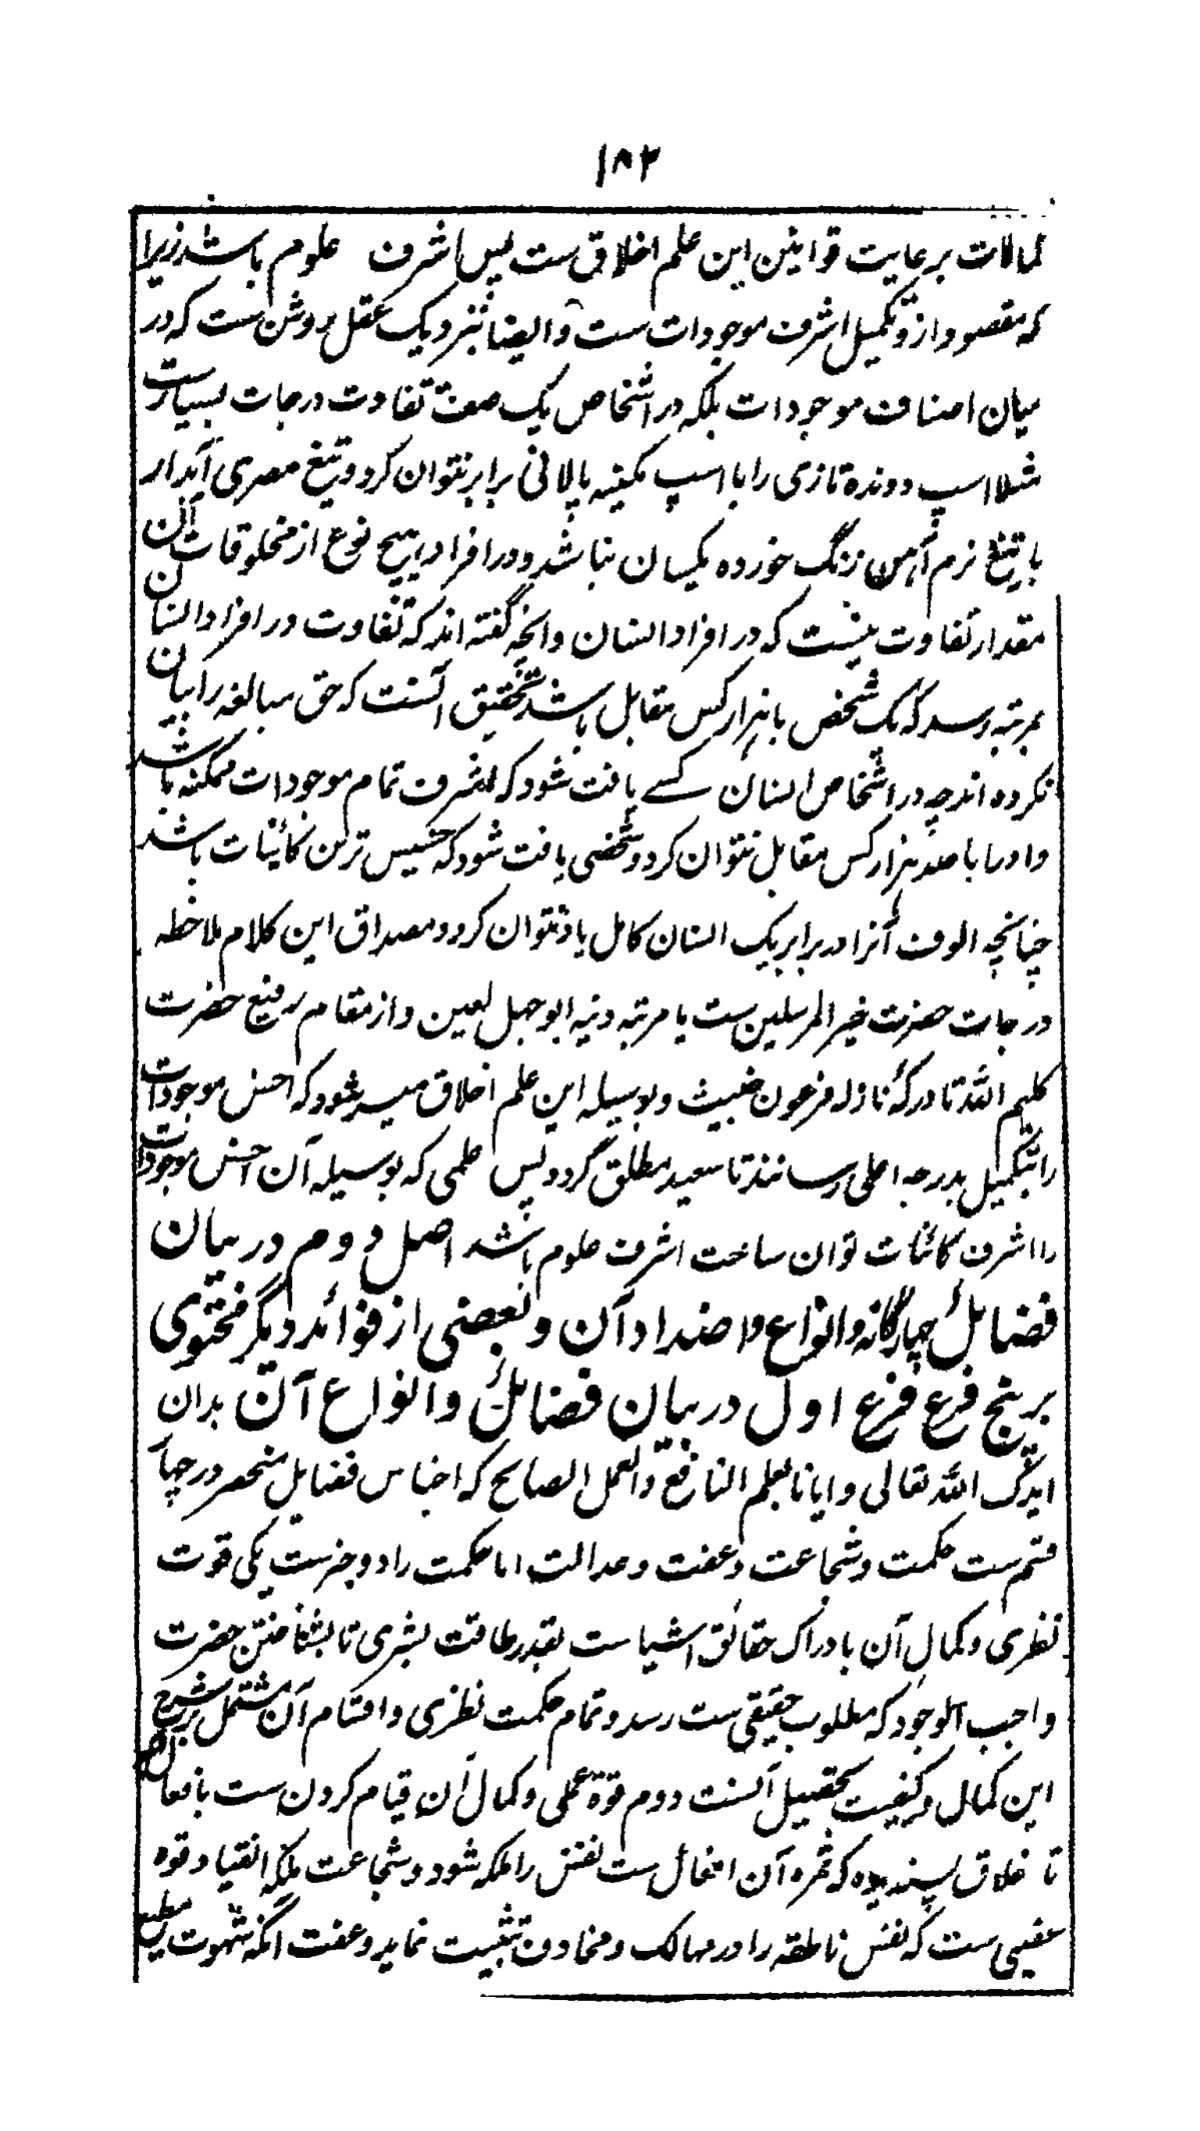 ۱۸۲
کمالات برعایت قوانین این علم اخلاق ست پس اشرف علوم باشد زیرا
که مقصود ازو تکمیل اشرف موجودات ست و ایضا نزدیک عقل روشن ست که در
میان اصناف موجودات بلکه در اشخاص یک صنف تفاوت درجات بسیارست
مثلا اسپ دونده تازی را با اسپ کمینه پالانی برابر نتوان کرد و تیغ مصری آبدار
با تیغ نرم آهن زنگ خورده یکسان نباشد و در افراد هیچ نوع از مخلوقات آن
مقدار تفاوت نیست که در افراد انسان و انچه گفته اند که تفاوت در افراد انسان
بمرتبه رسد که یک شخص با هزار کس مقابل باشد تحقیق آنست که حق مبالغه را بیان
نکرده اند چه در اشخاص انسان کسے یافت شود که اشرف تمام موجودات ممکنه باشد
و او را با صد هزار کس مقابل نتوان کرد و شخصی یافت شود که خسیس ترین کائنات باشد
چنانچه الوف آنرا در برابر یک انسان کامل یاد نتوان کرد و مصداق این کلام ملاحظه
درجات حضرت خیر المرسلین ست با مرتبه دنیه ابوجهل لعین و از مقام رفیع حضرت
کلیم الله تا درکه نازله فرعون خبیث و بوسیله این علم اخلاق میسر شود که اخس موجودات
را بتکمیل بدرجه اعلی رسانند تا سعید مطلق گردد پس علمی که بوسیله آن اخس موجودات
را اشرف کائنات توان ساخت اشرف علوم باشد اصل دوم در بیان
فضایل چهارگانه و انواع و اضداد آن و بعضی از فوائد دیگر محتوی
بر پنج فرع فرع اول در بیان فضائل و انواع آن بدان
ایدک الله تعالی و ایانا بعلم النافع و العمل الصالح که اجناس فضایل منحصر در چهار
قسم ست حکمت و شجاعت و عفت و عدالت اما حکمت را دو جزست یکی قوت
نظری و کمال آن بادراک حقائق اشیاست بقدر طاقت بشری تا بشناختن حضرت
واجب الوجود که مطلوب حقیقی ست رسد و تمام حکمت نظری و اقسام آن مشتمل بر شرح
این کمال و کیفیت تحصیل آنست دوم قوة عملی و کمال آن قیام کردن ست بافعال
تا خلاق پسندیده که ثمره آن افعال ست نفس را ملکه شود و شجاعت ملکه انقیاد قوه
غضبی ست که نفس ناطقه را در مهالک و مخاوف تثبیت نماید و عفت انکه شهوت مطیع